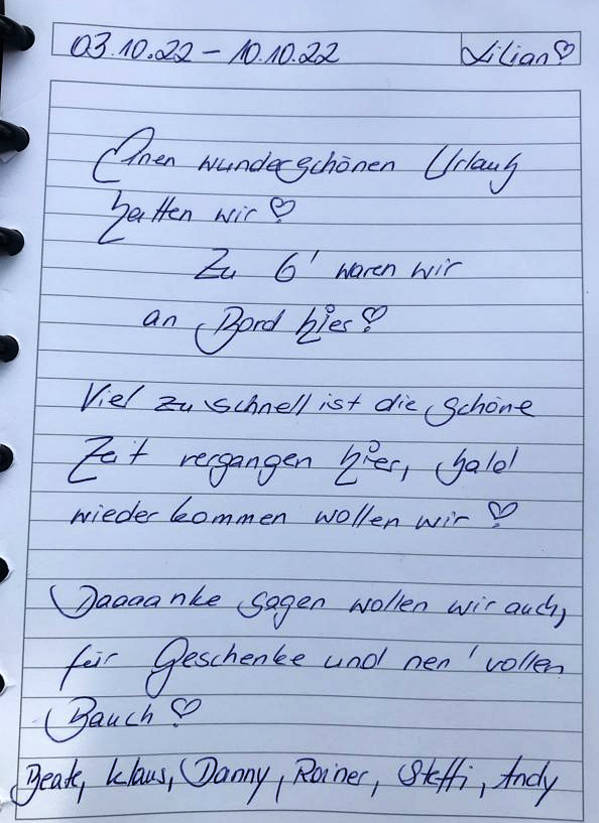 03.10.22 - 10.10.22 Lilian♡
Einen wunderschönen Urlaub
hatten wir♡
Zu 6' waren wir
an Bord hier♡
Viel zu schnell ist die schöne
Zeit vergangen hier, bald
wieder kommen wollen wir♡
Daaaanke sagen wollen wir auch,
für Geschenke und nen' vollen
Bauch♡
Beate, Klaus, Danny, Rainer, Steffi, Andy